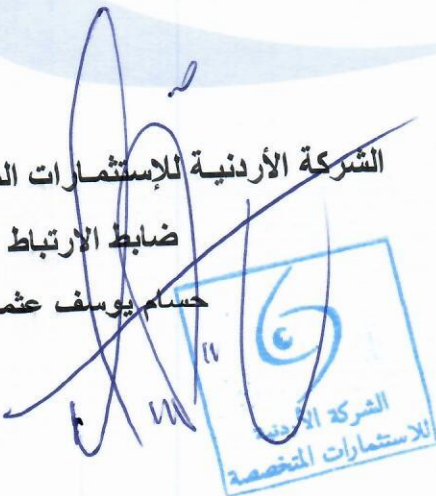 الشركة الأردنية للإستثمارات
ضابط الارتباط
حسام يوسف
الشركة الأردنية
للاستثمارات المتخصصة